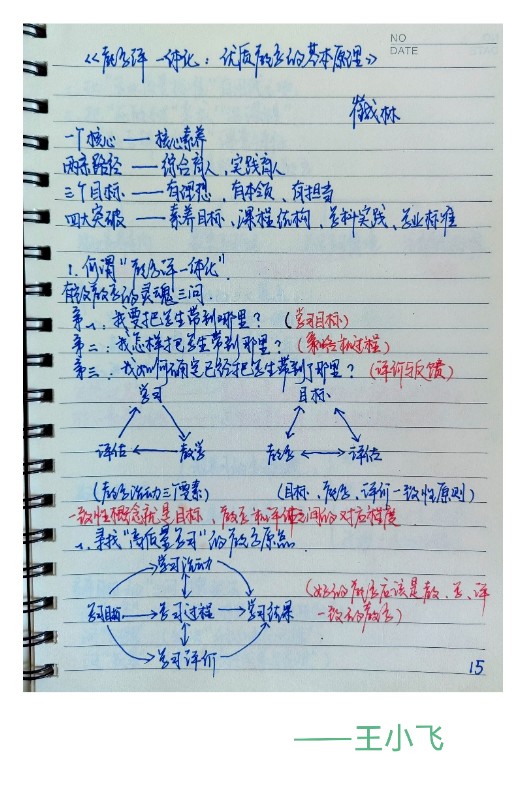 NO
DATE
《教学评一体化：优质教学的基本原理》
崔成林
一个核心——核心素养
两条路径——综合育人、实践育人
三个目标——有理想、有本领、有担当
四大突破——素养目标、课程结构、学科实践、学业标准
1. 何谓“教学评一体化”
有效教学的灵魂三问
第一：我要把学生带到哪里？（学习目标）
第二：我怎样把学生带到那里？（策略和过程）
第三：我如何确定已经把学生带到了那里？（评价与反馈）
学习 目标
评估 教学 教学 评估
（教学活动三个要素） （目标、教学、评价一致性原则）
一致性概念就是目标、教学和评估之间的对应程度
2. 寻找“高质量学习”的教学原点
学习活动
（好的教学应该是教、学、评
学习目标 学习过程 学习结果
一致的教学）
学习评价
15
——王小飞